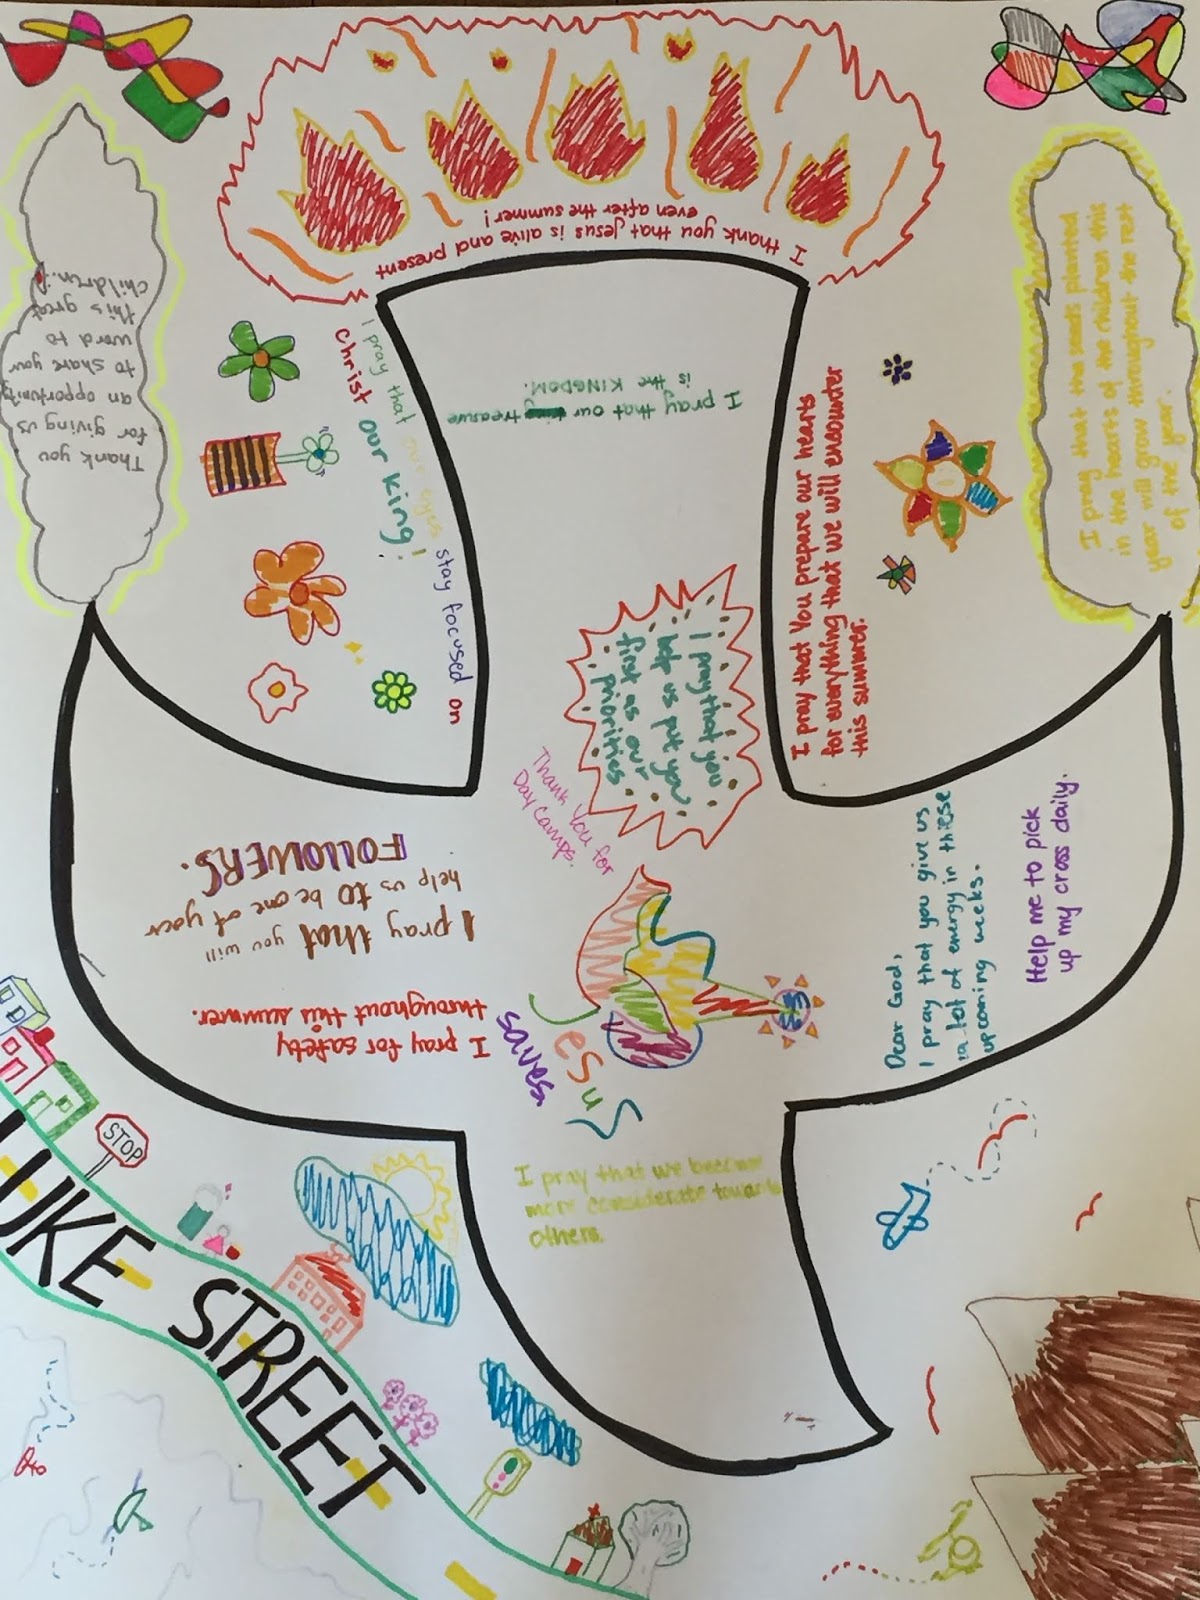 I thank you that Jesus is alive and present
even after the summer!
Thank you
for giving us
an opportunity
to share your
word to
this great
children.
I pray that the seeds planted
in the hearts of the children this
year will grow throughout the rest
of the year.
I pray that our eyes stay focused on
Christ our king!
I pray that our treasure
is the KINGDOM.
I pray that You prepare our hearts
for everything that we will encounter
this summer.
I pray that you
let us put you
first as our
priorities
Thank You for
Day Camps.
I pray that you will
help us to be one of your
FOLLOWERS.
I pray for safety
throughout this summer.
Jesus
saves.
Dear God,
I pray that you give us
a lot of energy in these
upcoming weeks.
Help me to pick
up my cross daily.
I pray that we become
more considerate towards
others.
STOP
LUKE STREET